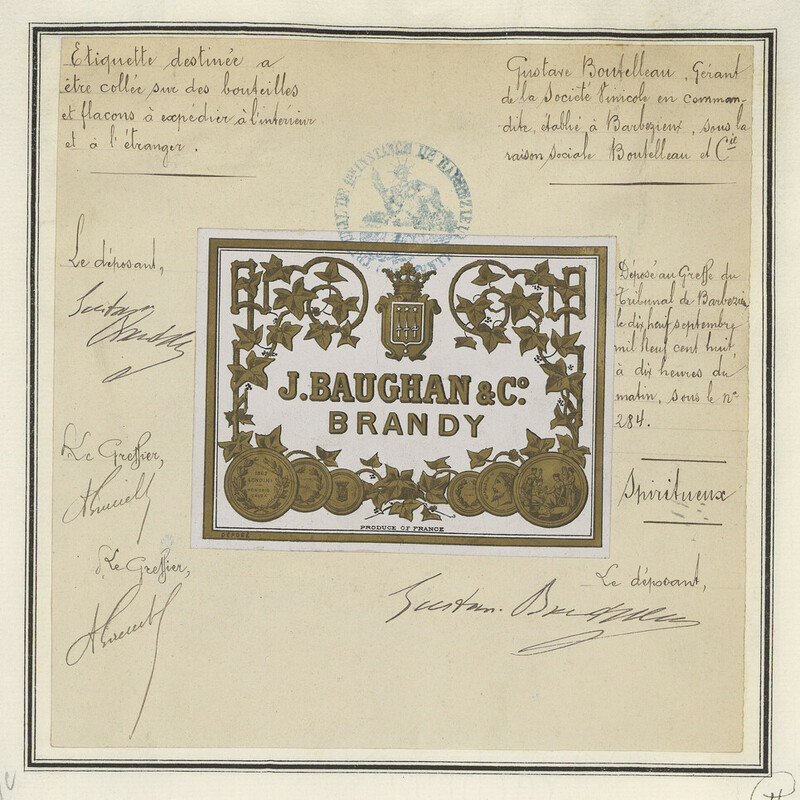 Etiquette destinée a
être collée sur des bouteilles
et flacons à expédier à l'intérieur
et à l'étranger.
Gustave Boutelleau, Gérant
de la Société Vinicole en comman-
dite, établie à Barbezieux, sous la
raison sociale Boutelleau et Cie
TRIBUNAL DE 1ère INSTANCE DE BARBEZIEUX
Le déposant,
Déposé au Greffe du
Tribunal de Barbezieux
le dix neuf septembre
mil neuf cent huit,
à dix heures du
matin, sous le no
284.
J. BAUGHAN & Co.
BRANDY
PRODUCE OF FRANCE
DÉPOSÉ
Le Greffier,
Spiritueux
Le Greffier,
Le déposant,